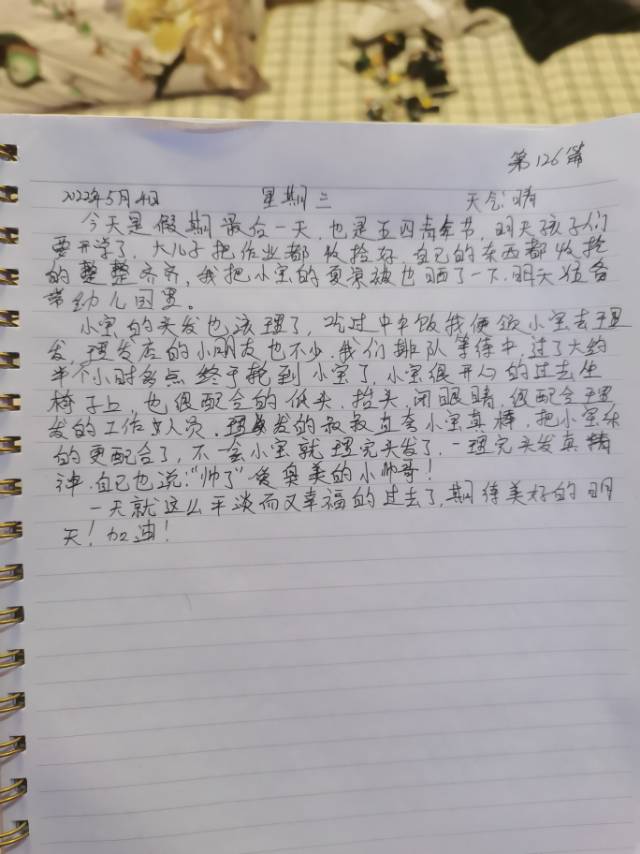 第126篇
2022年5月4日 星期三 天气:晴
今天是假期最后一天,也是五四青年节,明天孩子们
要开学了,大儿子把作业都收拾好,自己的东西都收拾
的整整齐齐,我把小宝的夏凉被也晒了一下,明天
带幼儿园里。
小宝的头发也该理了,吃过中午饭我便领小宝去理
发,理发店的小朋友也不少,我们排队等待中,过了大约
半个小时多点终于轮到小宝了,小宝很开心的过去坐
椅子上,也很配合的低头,抬头,闭眼睛,很配合理
发的工作人员,理发的叔叔直夸小宝真棒,把小宝乐
的更配合了,不一会小宝就理完头发了,一理完头发真精
神,自己也说:“帅了”臭美的小帅哥!
一天就这么平淡而又幸福的过去了,期待美好的明
天!加油!